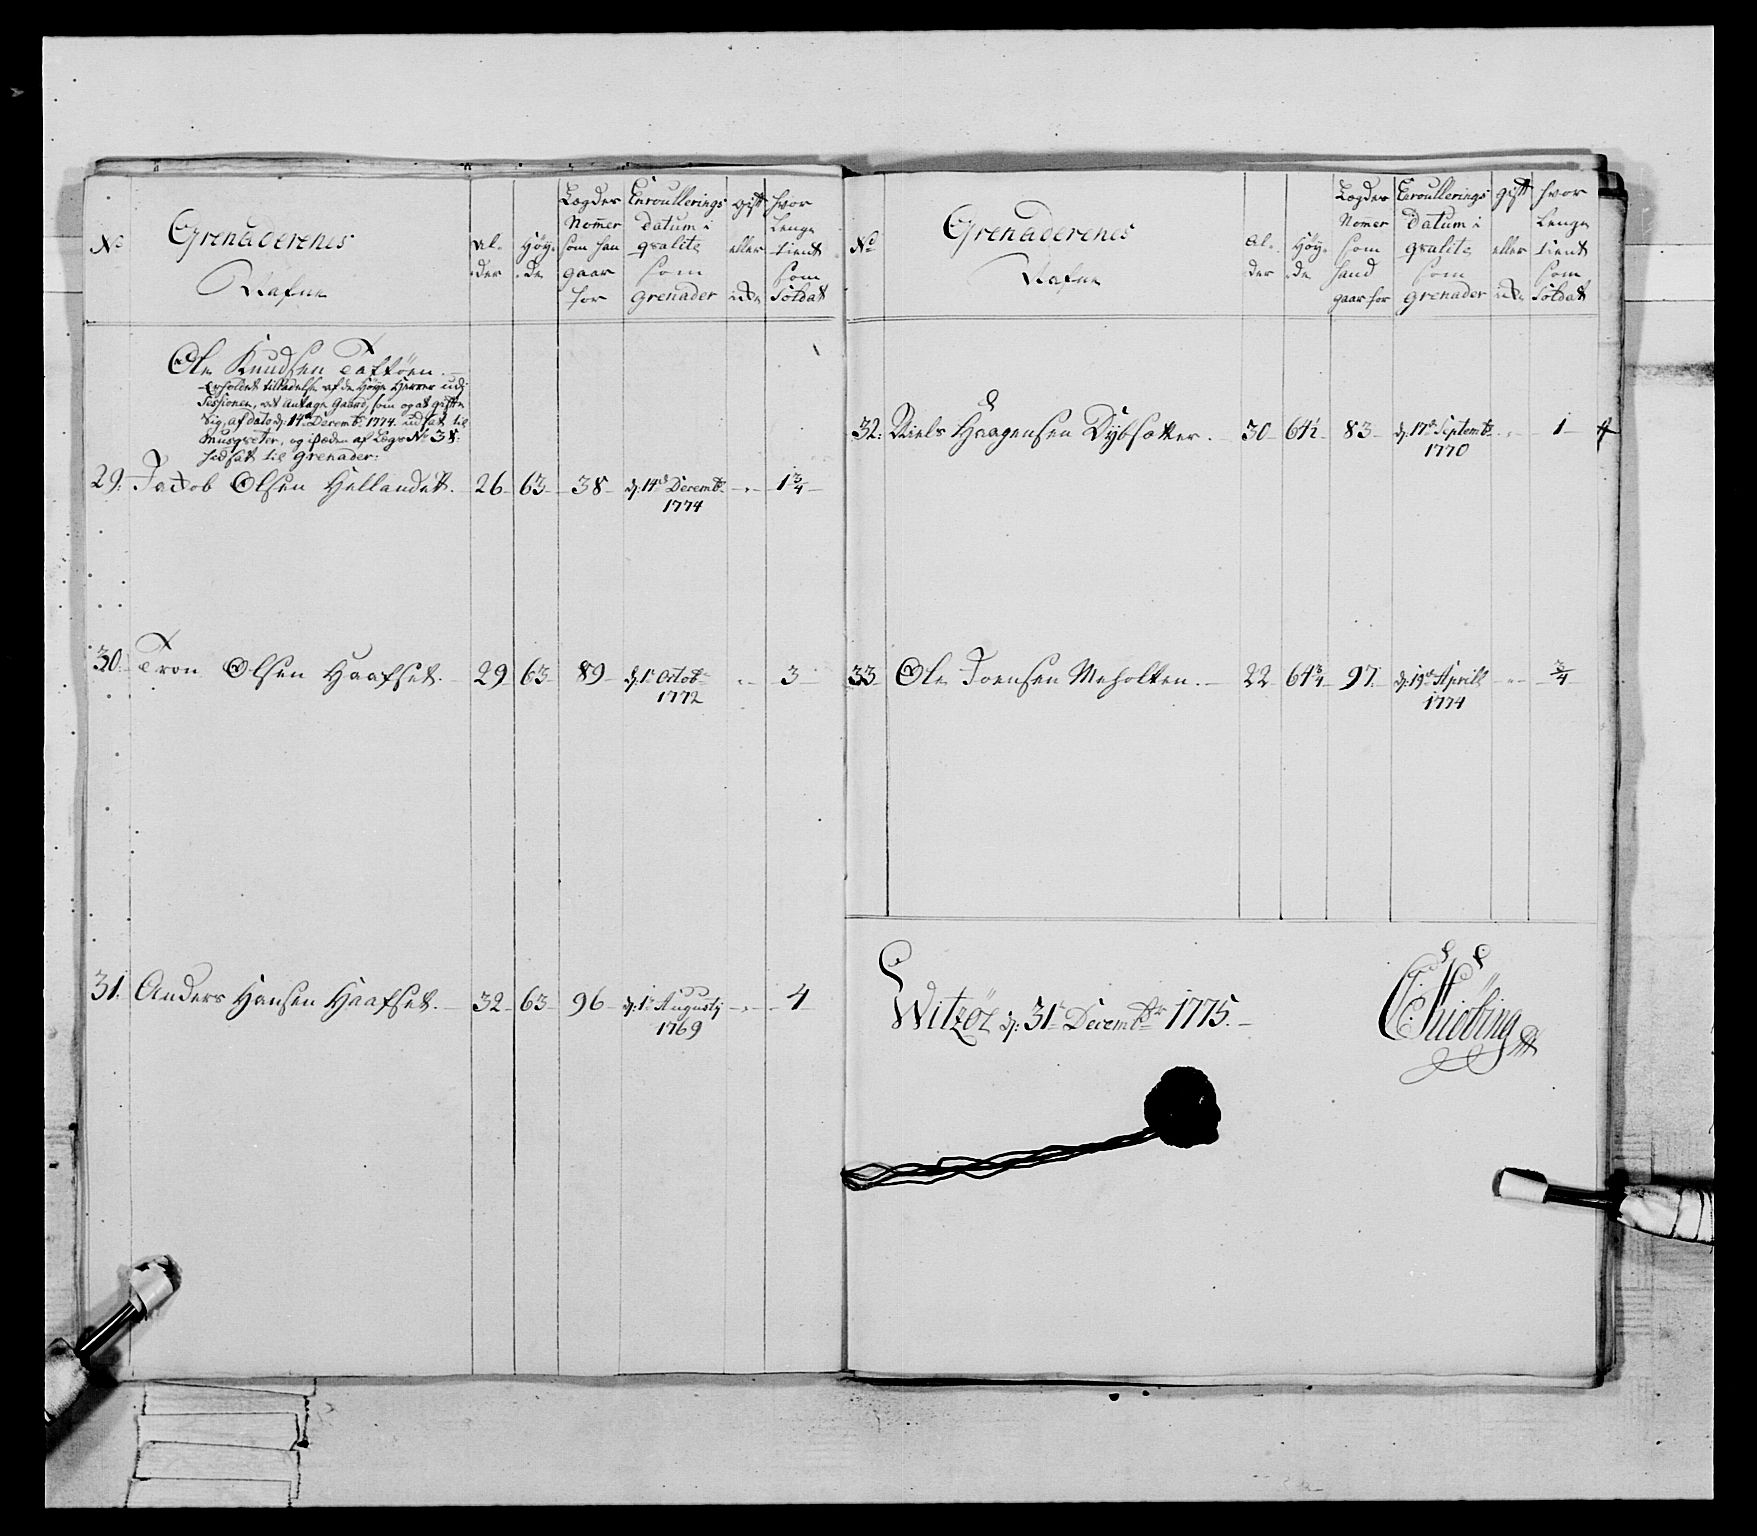 No
Grenaderenes
Nafne
Al-
der
Høy-
de
Lægdes
Nomer
som han
gaar
for
Enroullerings
Datum i
qvalite
som
grenader
gift
eller
hvor
Lenge
tient
som
Soldat
Ole Knudsen
Erholdet tilladelse af de Høye Herrer udi
Sessionen, at antage Gaard, som og at gifte
sig, af dato d: 14de Decembr 1774. udsat til
Musqveter, og i Steden af Lægs No 38:
indsat til Grenader:
29. Jacob Olsen Hellandet. 26 63 38 d: 14de Decembr 1 3/4
1774
30. Tron Olsen Haafset. 29 63 89 d: 1te Octobr 3
1772
31. Anders Hansen Haafset. 32 63 96 d: 1te Augusty 4
1769
No
Grenaderenes
Nafne
Al-
der
Høy-
de
Lægdes
Nomer
som
hand
gaar for
Enroullerings
Datum i
qvalite
som
grenader
gift
eller
hvor
Lenge
tient
som
Soldat
32. Niels Haagensen Dybsetter. 30 64½ 83 d: 17de Septembr 1
1770
33 Ole Joensen Meholten. 22 64 3/4 97. d: 19de Aprill 3/4
1774
Witzøe d: 31te Decembr 1775.